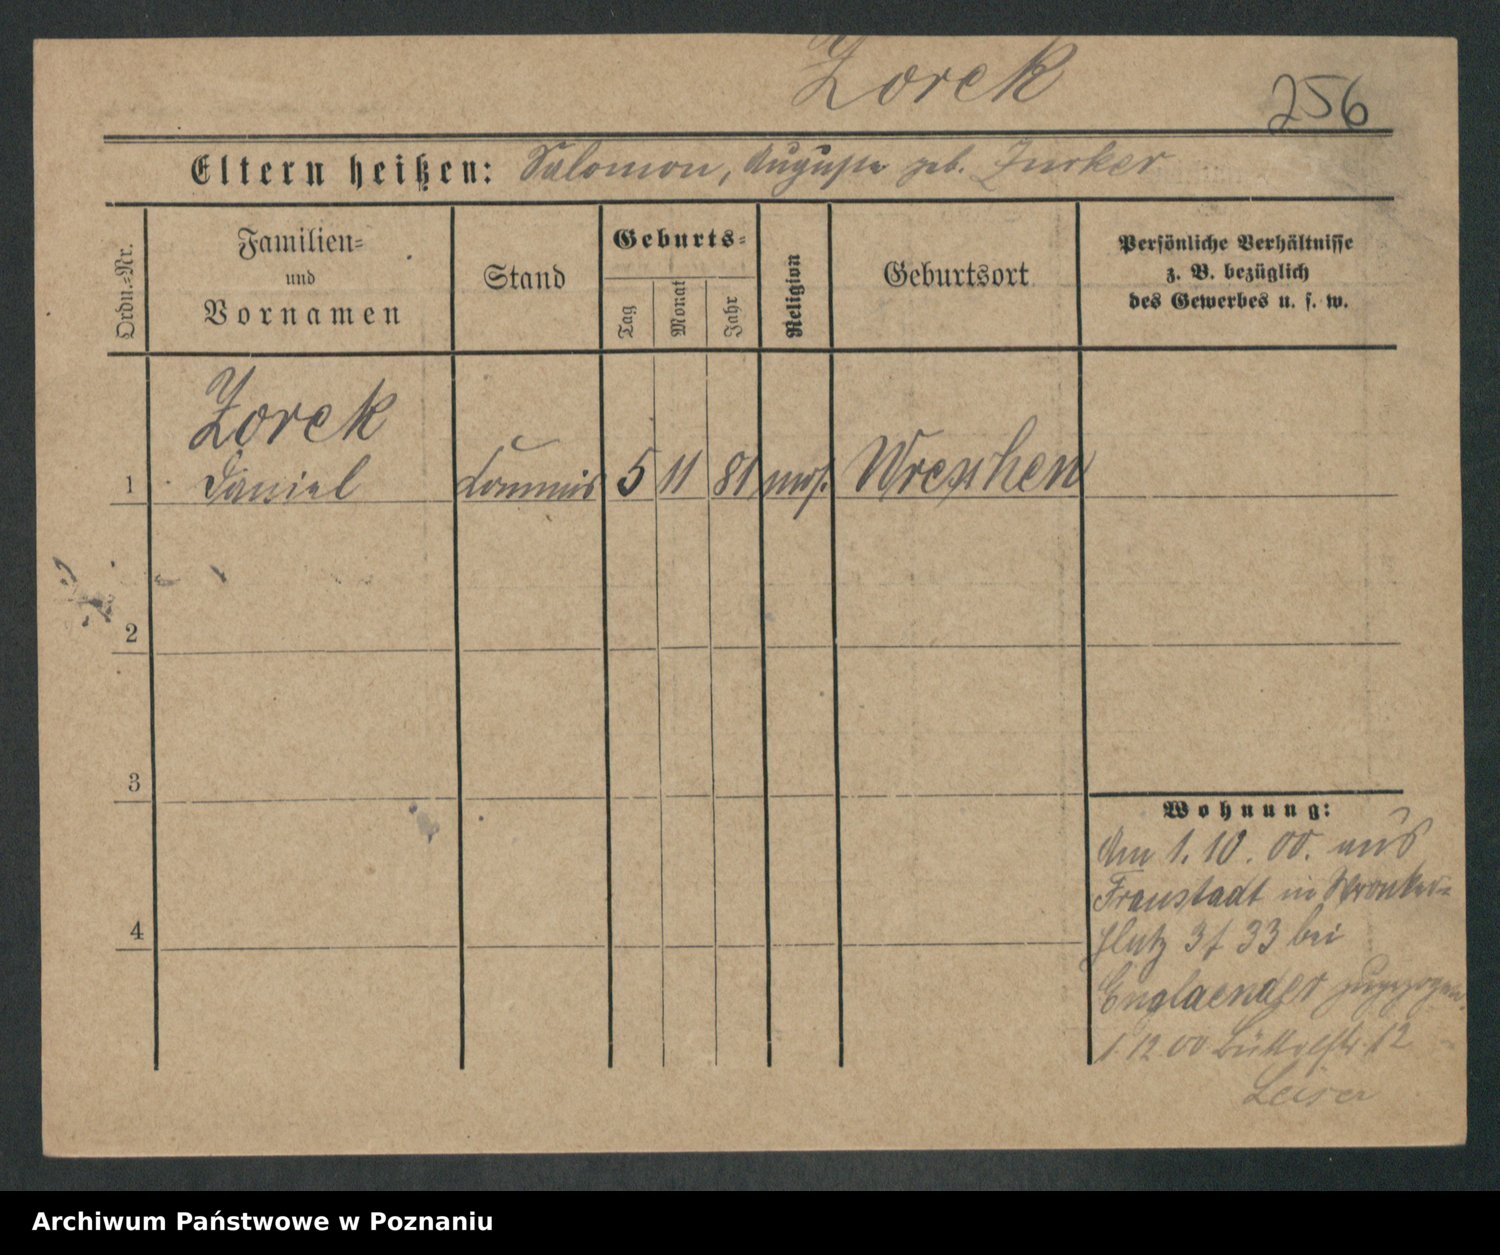 Zorek
256
Eltern heißen: Salomon, Auguste geb. Zurker
Ordn.=Nr.
Familien=
und
Vornamen
Stand
Geburts=
Tag
Monat
Jahr
Religion
Geburtsort
Persönliche Verhältnisse
z. B. bezüglich
des Gewerbes u. s. w.
Zorek
1 Daniel Commis 5 11 81 mos. Wreschen
2
3
4
Wohnung:
Am 1. 10. 00. aus
Fraustadt in Wronker=
platz 3/ 33 bei
Englaender zugezogen.
1 12 00 12
Leiser
Archiwum Państwowe w Poznaniu